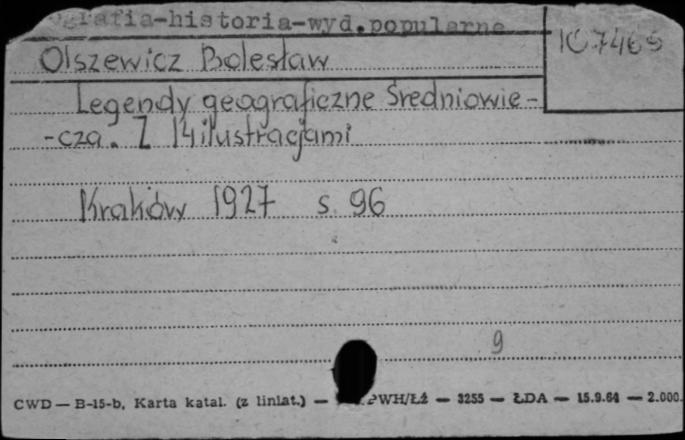 ografia-historia-wyd.popularne
Olszewicz Bolesław
Legendy geograficzne Średniowie-
-cza. Z 14 ilustracjami
Kraków 1927 s. 96
9
CWD — B-15-b. Karta katal. (z liniat.) — PWH/Łż — 3255 — ŁDA — 15.9.64 — 2.000.